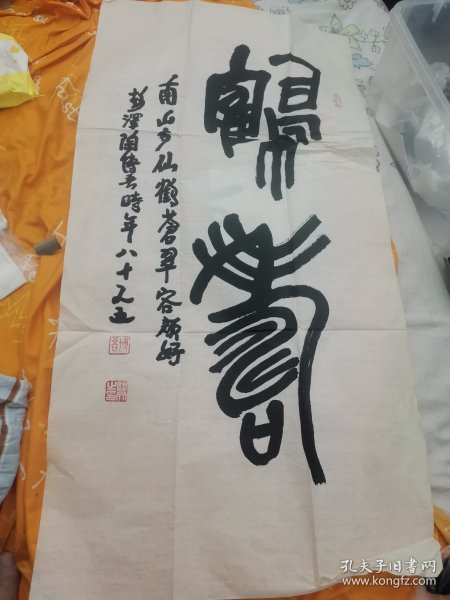 鶴寿
南山多仙鹤苍翠容颜好
彭泽陶博吾时年八十又五
孔夫子旧书网
www.kongfz.com